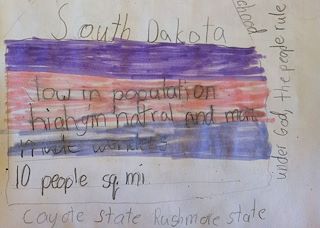 South Dakota
low in population
high in natral and man
made wonders
10 people sq mi
Coyote State Rushmore state
under God, the people rule